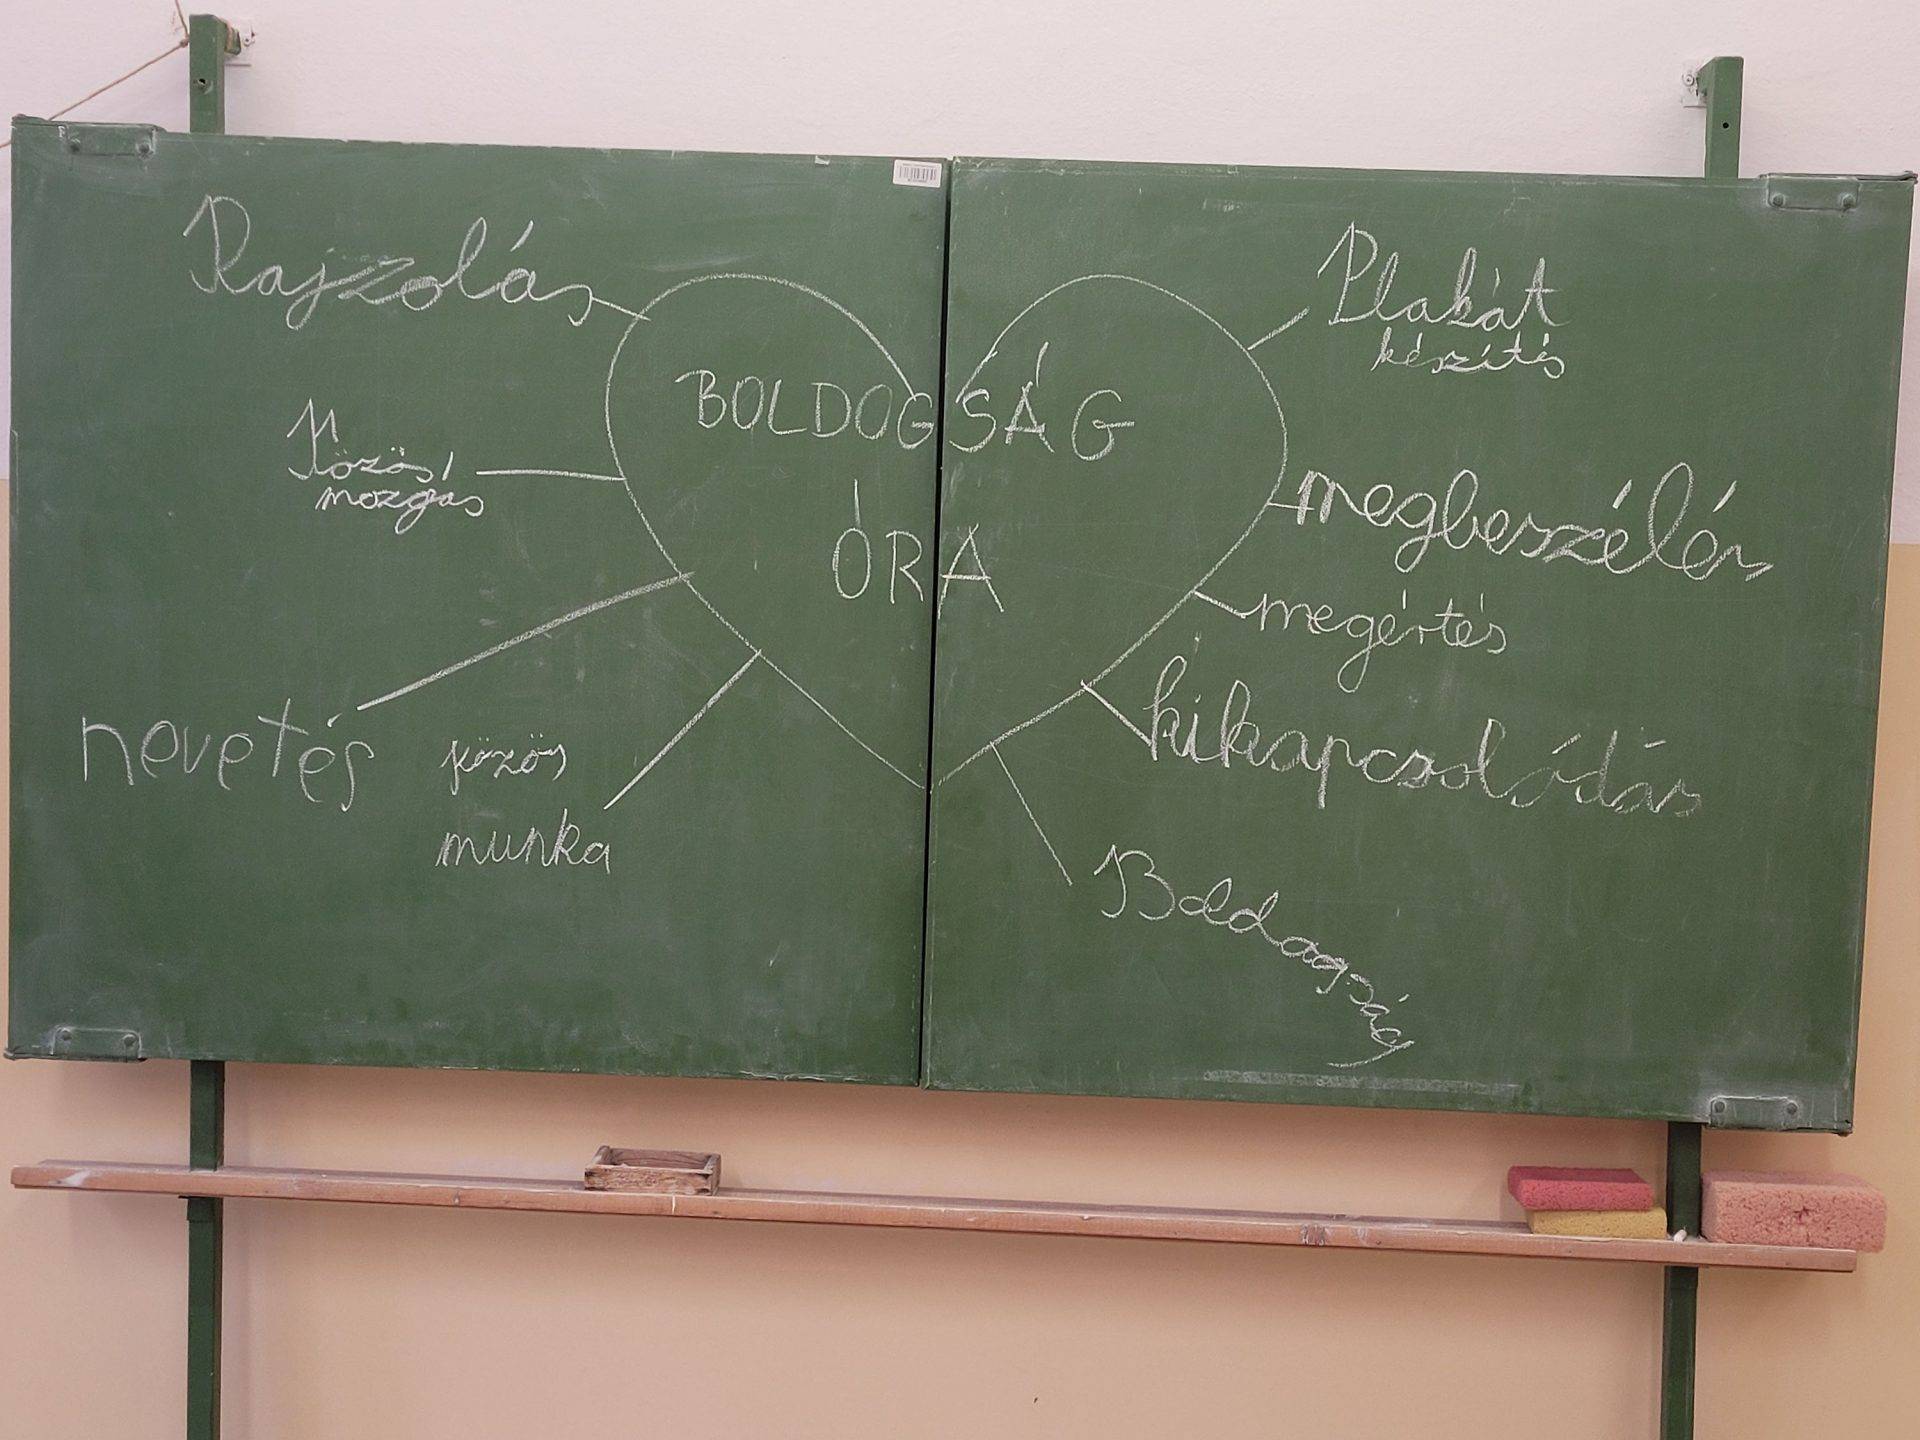 Rajzolás
Közös
mozgás
nevetés
közös
munka
BOLDOGSÁG
ÓRA
Plakát
készítés
megbeszélés
megértés
kikapcsolódás
Boldogság